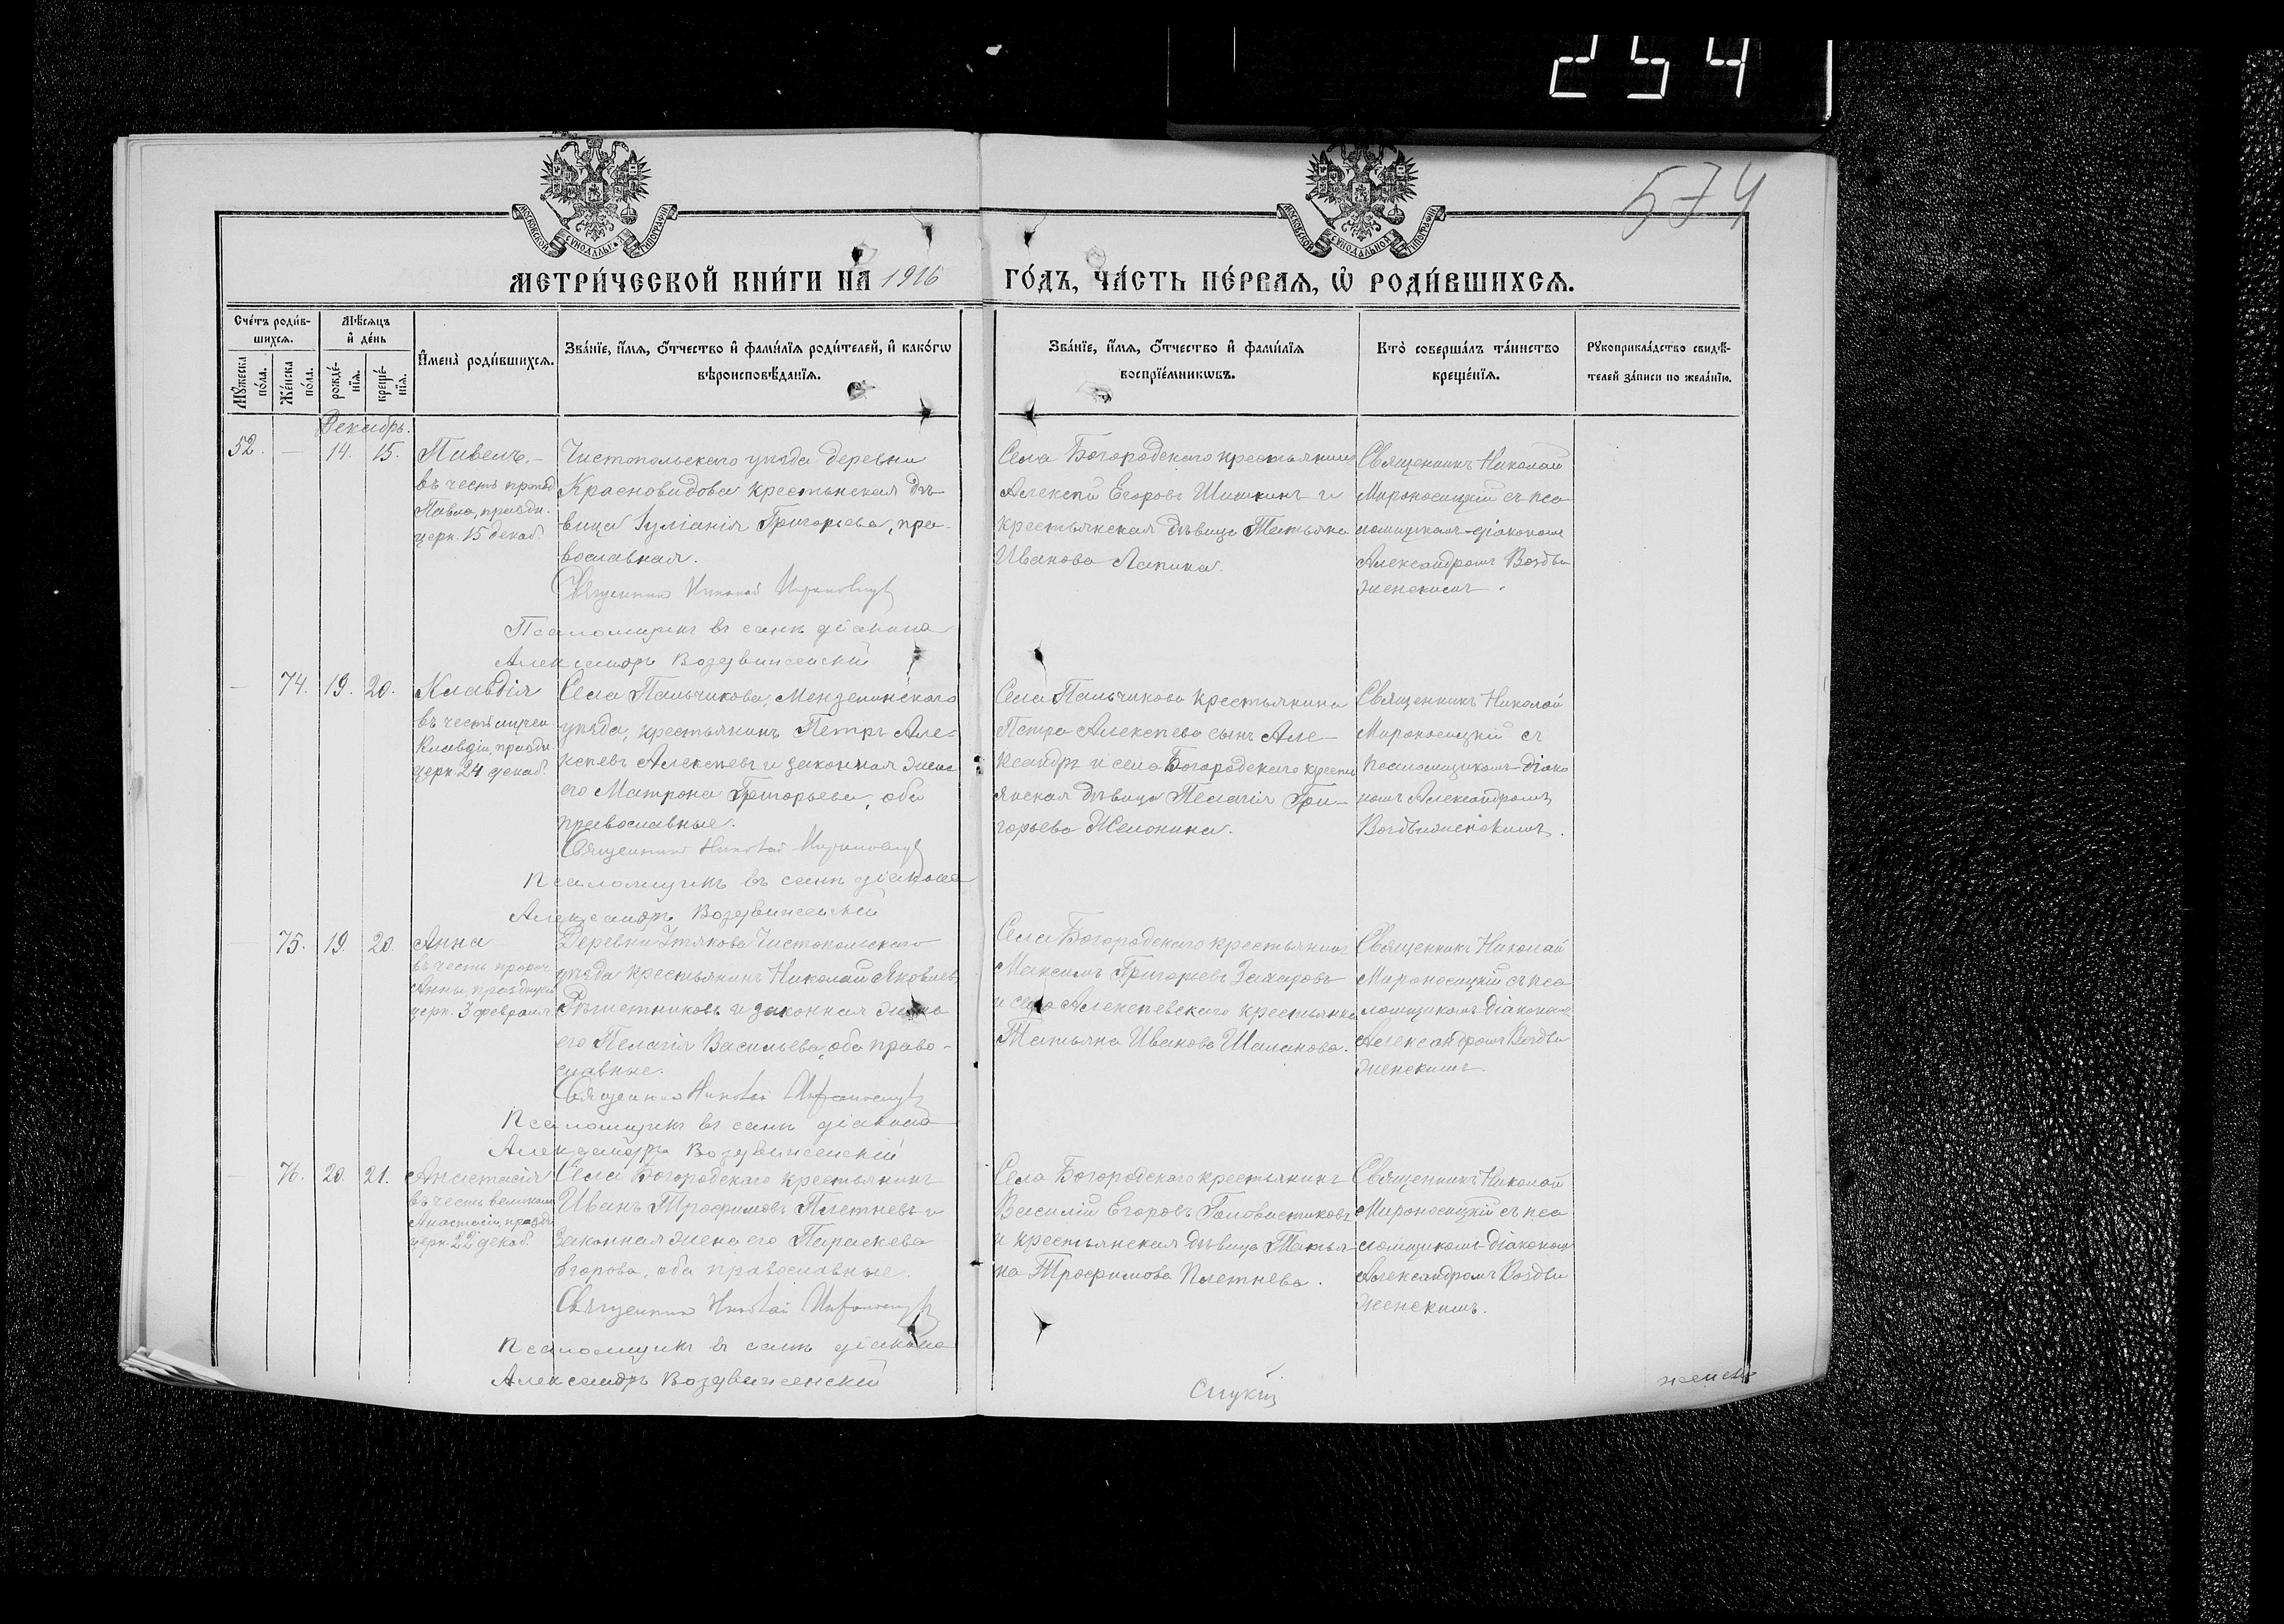 254
574
МОСКОВСКОЙ СѴНОДАЛЬНОЙ ТИПОГРАФІИ
МОСКОВСКОЙ СѴНОДАЛЬНОЙ ТИПОГРАФІИ
МЕТРИ́ЧЕСКОЙ КНИ́ГИ НА 1916 ГО́ДЪ, ЧА́СТЬ ПЕ́РВАЯ, Ѽ РОДИ́ВШИХСЯ.
Сче́тъ роди́в-
шихся.
Мꙋ́жеска по́ла.
Же́нска по́ла.
Мѣ́сяцъ
и҆ де́нь
рожде́-
нїя.
креще́-
нїя.
И҆мена̀ роди́вшихся.
Зва́нїе, и҆́мя, ѻ҆́тчество и҆ фами́лїя роди́телей, и҆ како́гѡ
вѣроисповѣ́данїя.
Зва́нїе, и҆́мя, ѻ҆́тчество и҆ фами́лїя
воспрїе́мникѡвъ.
Кто̀ соверша́лъ та́инство
креще́нїя.
Рꙋкоприкла́дство свидѣ́-
телей за́писи по жела́нїю.
Декабрь.
52. — 14. 15.
Павелъ. —
въ честь препод.
Павла, праздн.
церк. 15 декаб.
Чистопольскаго уѣзда деревни
Красновидова крестьянская дѣ-
вица Іуліанія Григорьева, пра-
вославная.
Священникъ Николай Мироносицкій
Псаломщикъ въ санѣ діакона
Александръ Воздвиженскій
Села Богородскаго крестьянинъ
Алексѣй Егоровъ Шишкинъ и
крестьянская дѣвица Татьяна
Иванова Лапина.
Священникъ Николай
Мироносицкій съ пса-
ломщикомъ-діакономъ
Александромъ Воздви
женскимъ.
— 74. 19. 20.
Клавдія
въ честь мучен.
Клавдіи, праздн.
церк. 24 декаб.
Села Пальчикова, Мензелинскаго
уѣзда, крестьянинъ Петръ Але-
ксѣевъ Алексѣевъ и законная жена
его Матрона Григорьева, оба
православные.
Священникъ Николай Мироносицкій
Псаломщикъ въ санѣ діакона
Александръ Воздвиженскій
Села Пальчикова крестьянина
Петра Алексѣева сынъ Але-
ксандръ и села Богородскаго кресть
янская дѣвица Пелагія Гри-
горьева Желонина.
Священникъ Николай
Мироносицкій съ
псаломщикомъ-діако
номъ Александромъ
Воздвиженскимъ.
— 75. 19. 20.
Анна
въ честь пророч.
Анны, празднуем.
церк. 3 февраля.
Деревни Утякова Чистопольскаго
уѣзда крестьянинъ Николай Яковлевъ
Рѣшетниковъ и законная жена
его Пелагія Васильева, оба право-
славные.
Священникъ Николай Мироносицкій
Псаломщикъ въ санѣ діакона
Александръ Воздвиженскій
Села Богородскаго крестьянинъ
Максимъ Григорьевъ Захаровъ
и села Алексѣевскаго крестьянка
Татьяна Иванова Шаланова.
Священникъ Николай
Мироносицкій съ пса
ломщикомъ-діакономъ
Александромъ Воздви
женскимъ.
— 76. 20. 21.
Анастасія
въ честь великом.
Анастасіи, праздн.
церк. 22 декаб.
Села Богородскаго крестьянинъ
Иванъ Трофимовъ Плетневъ и
законная жена его Параскева
Егорова, оба православные.
Священникъ Николай Мироносицкій
Псаломщикъ въ санѣ діакона
Александръ Воздвиженскій
Села Богородскаго крестьянинъ
Василій Егоровъ Головастиковъ
и крестьянская дѣвица Татья-
на Трофимова Плетнева.
Священникъ Николай
Мироносицкій съ пса
ломщикомъ-діакономъ
Александромъ Воздви
женскимъ.